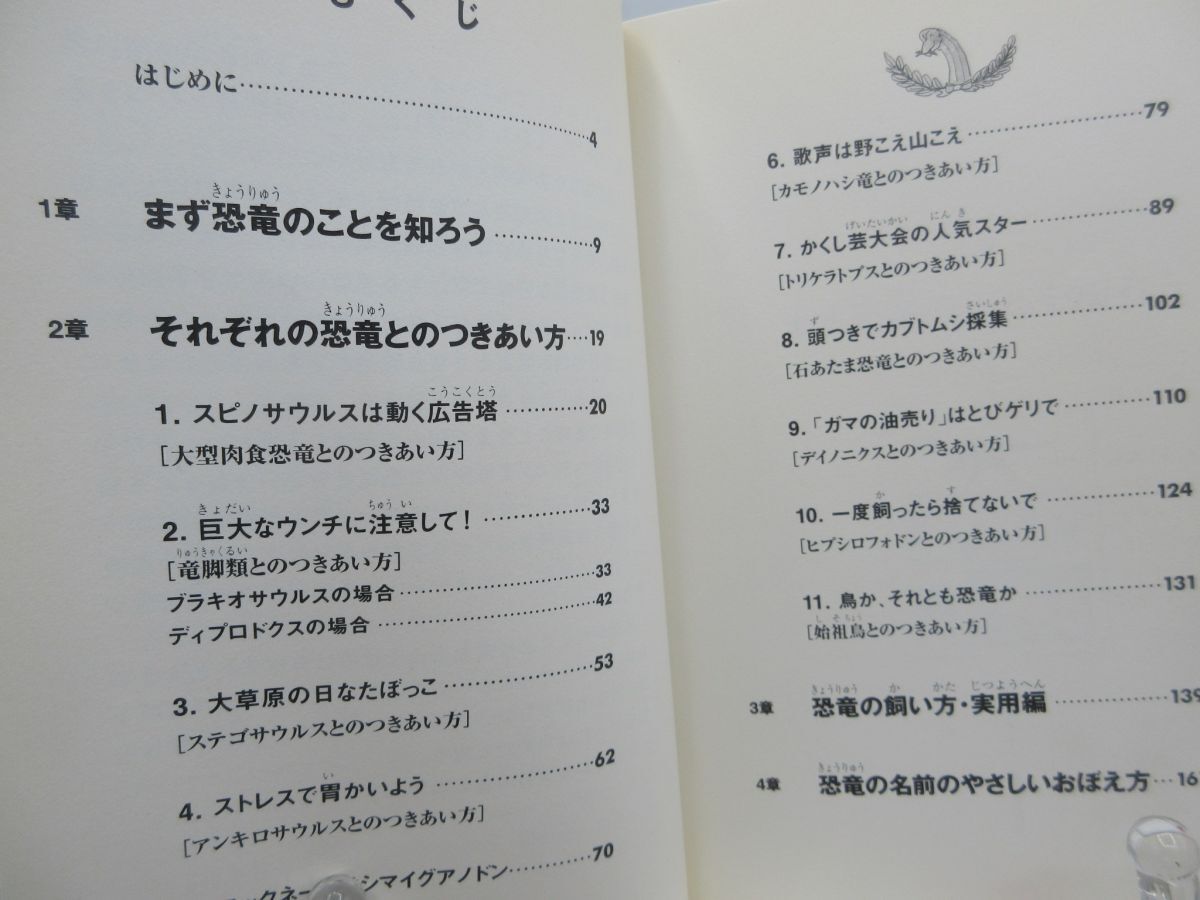 くじ
はじめに……4
1章 まず恐竜のことを知ろう……9
きょうりゅう
2章 それぞれの恐竜とのつきあい方……19
きょうりゅう
1. スピノサウルスは動く広告塔……20
こうこくとう
[大型肉食恐竜とのつきあい方]
2. 巨大なウンチに注意して!……33
きょだい ちゅうい
[竜脚類とのつきあい方]
りゅうきゃくるい
ブラキオサウルスの場合……33
ディプロドクスの場合……42
3. 大草原の日なたぼっこ……53
[ステゴサウルスとのつきあい方]
4. ストレスで胃かいよう……62
い
[アンキロサウルスとのつきあい方]
シマイグアノドン……70
6. 歌声は野こえ山こえ……79
[カモノハシ竜とのつきあい方]
7. かくし芸大会の人気スター……89
げいたいかい にんき
[トリケラトプスとのつきあい方]
8. 頭つきでカブトムシ採集……102
ず さいしゅう
[石あたま恐竜とのつきあい方]
9. 「ガマの油売り」はとびゲリで……110
[デイノニクスとのつきあい方]
10. 一度飼ったら捨てないで……124
か す
[ヒプシロフォドンとのつきあい方]
11. 鳥か、それとも恐竜か……131
[始祖鳥とのつきあい方]
しそちょう
3章 恐竜の飼い方・実用編……139
きょうりゅう か かた じつようへん
4章 恐竜の名前のやさしいおぼえ方…16
きょうりゅう